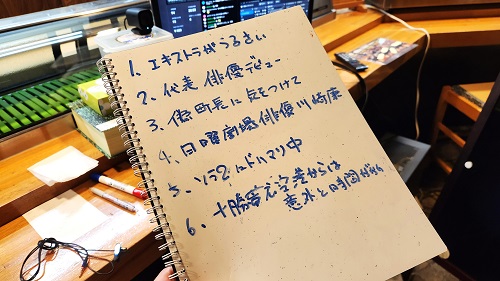 1. エキストラがうるさい
2. 代表 俳優デビュー
3. 町長に気をつけて
4. 日曜劇場俳優川崎康
5. ソラ2 にドハマり中
6. 十勝帯広空港からは
意外と時間がかかる